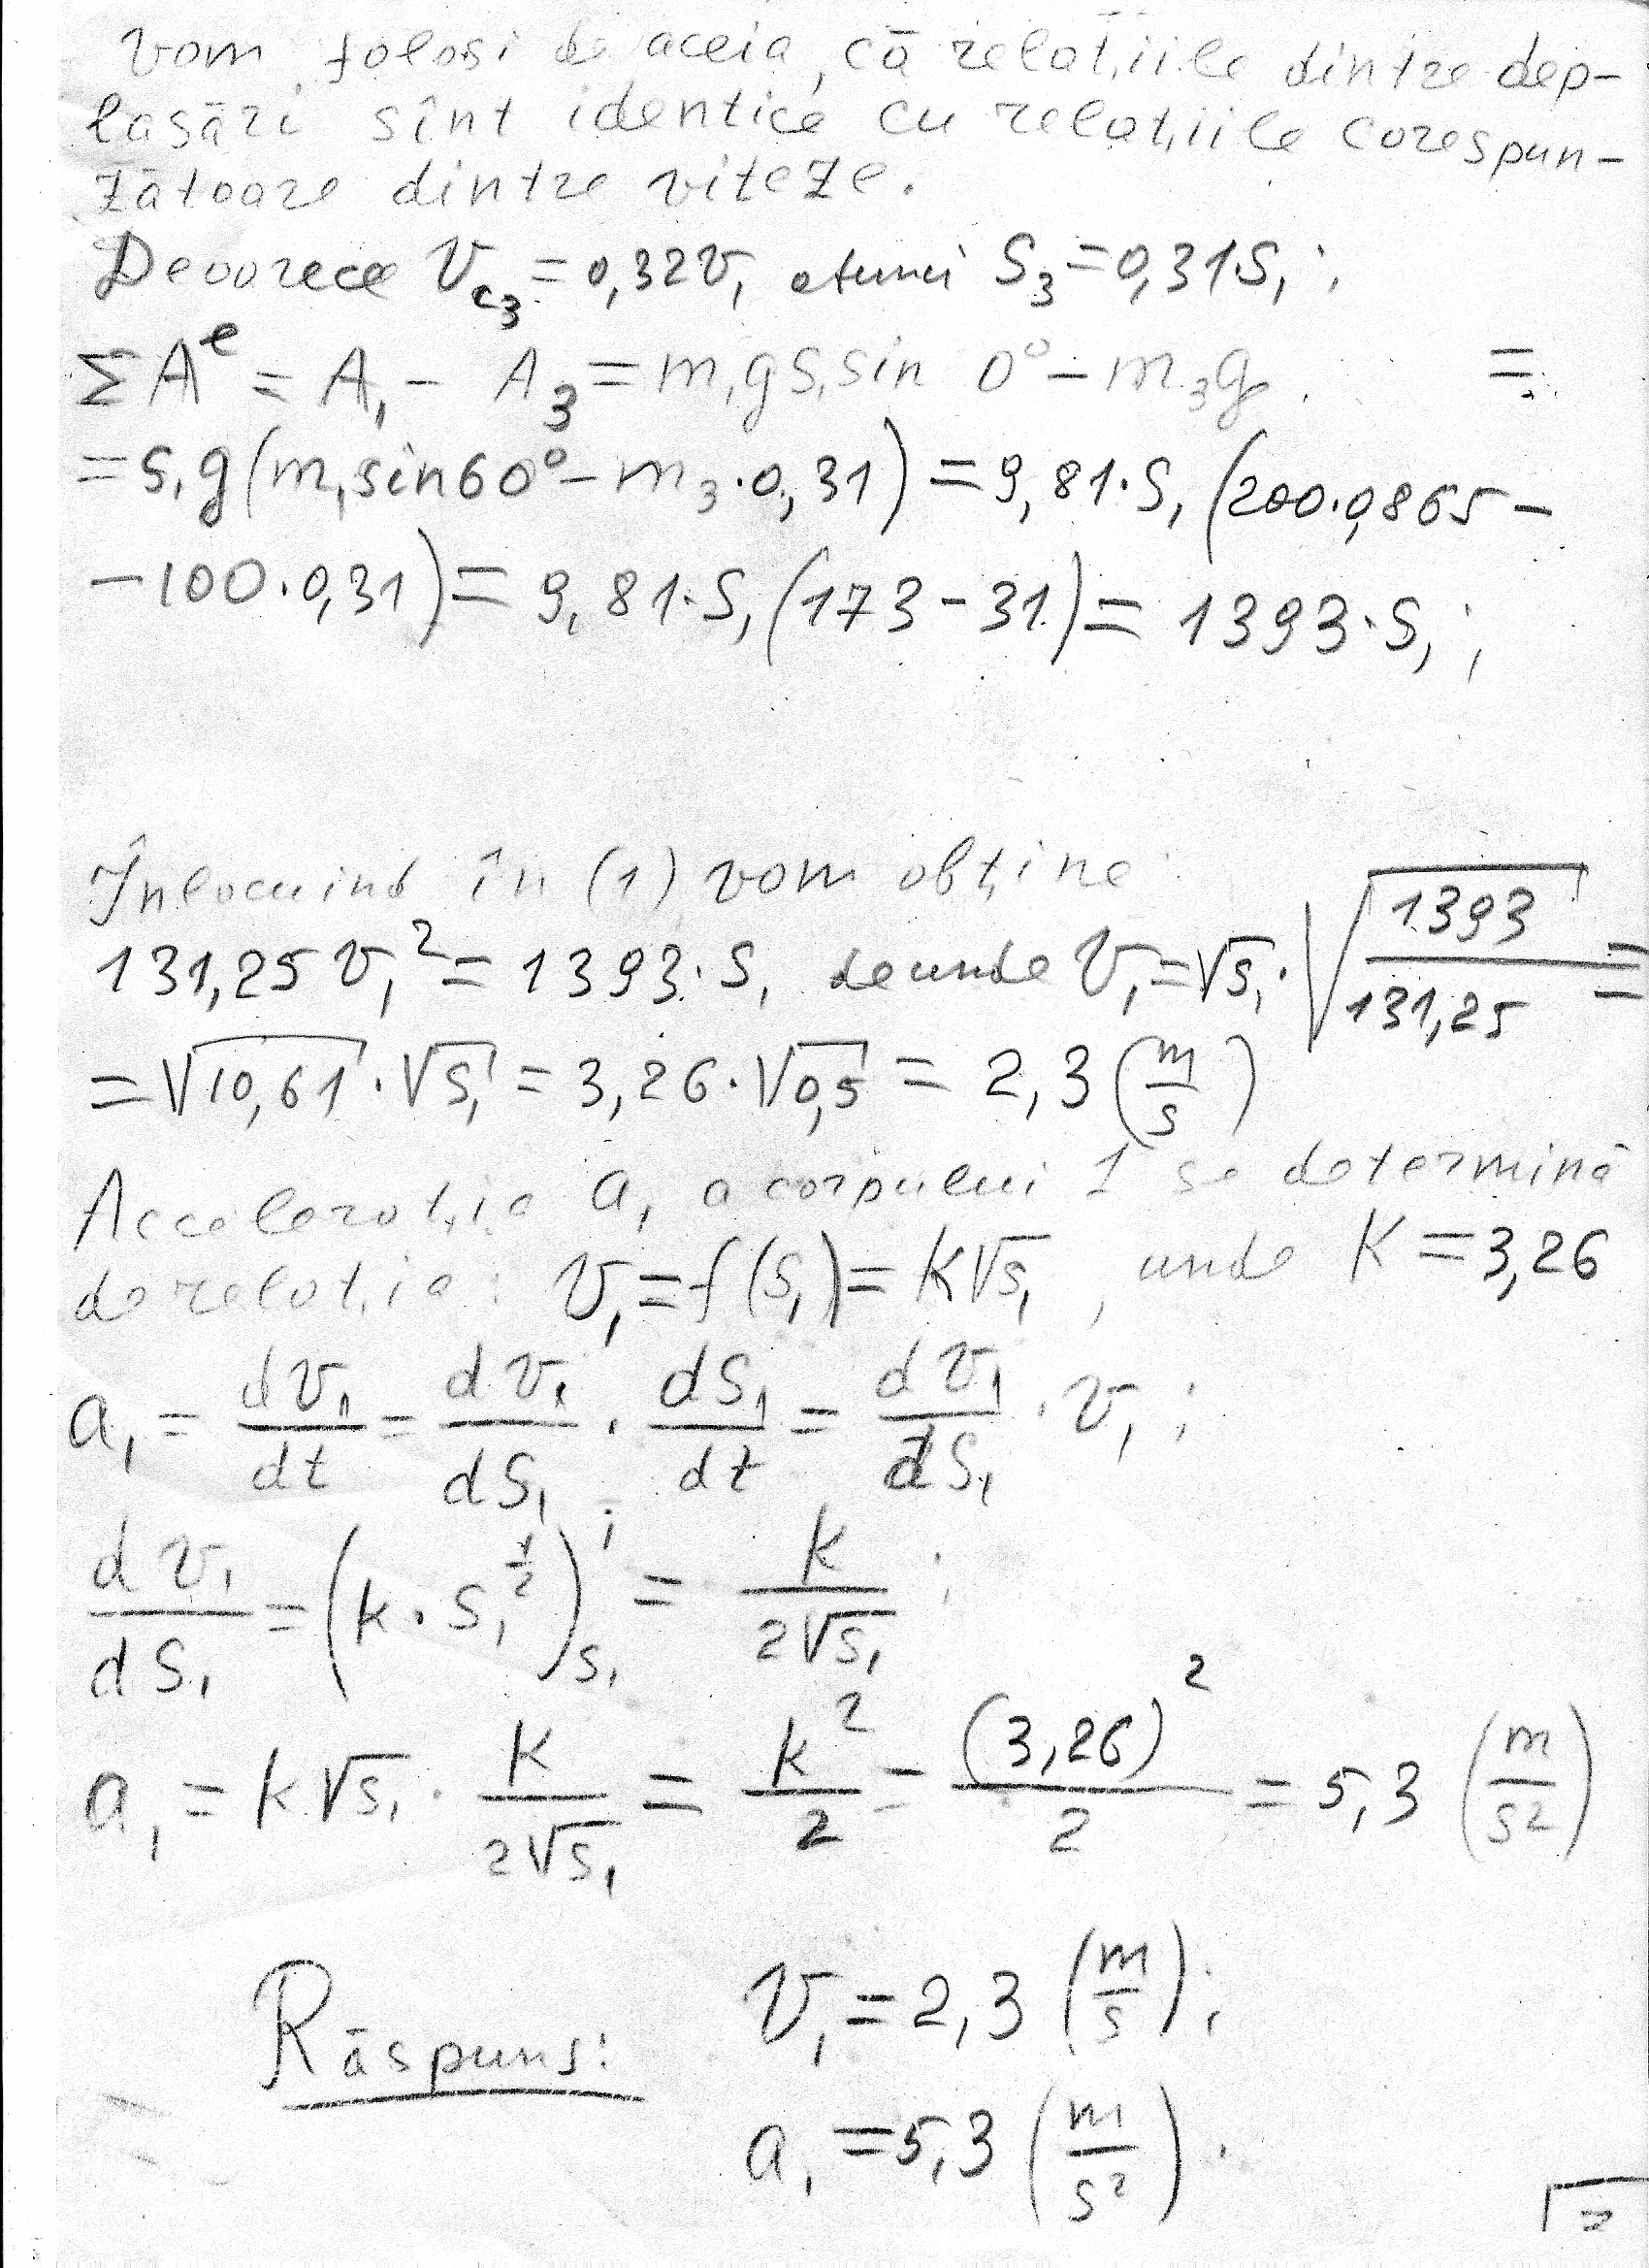 Vom folosi de aceia, că relațiile dintre dep-
lasări sînt identice cu relațiile corespun-
zătoare dintre viteze.
Deoarece Vc₃ = 0,32v₁ atunci S₃ = 0,31S₁;
ΣAᵉ = A₁ - A₃ = m₁gS₁sin 0° - m₃g =
= S₁g(m₁sin60° - m₃·0,31) = 9,81·S₁(200·0,865 -
- 100·0,31) = 9,81·S₁(173-31) = 1393·S₁;
Înlocuind în (1) vom obține:
131,25v₁² = 1393·S₁ de unde v₁ = √S₁·√(1393/131,25) =
= √10,61·√S₁ = 3,26·√0,5 = 2,3 (m/s)
Accelerația a₁ a corpului 1 se determină
de relația: v₁ = f(S₁) = K√S₁, unde K = 3,26
a₁ = dv₁/dt = dv₁/dS₁ · dS₁/dt = dv₁/dS₁ · v₁;
dv₁/dS₁ = (k·S₁^½)'S₁ = k/2√S₁;
a₁ = k√S₁ · k/2√S₁ = k²/2 = (3,26)²/2 = 5,3 (m/s²)
Răspuns: v₁ = 2,3 (m/s);
a₁ = 5,3 (m/s²).